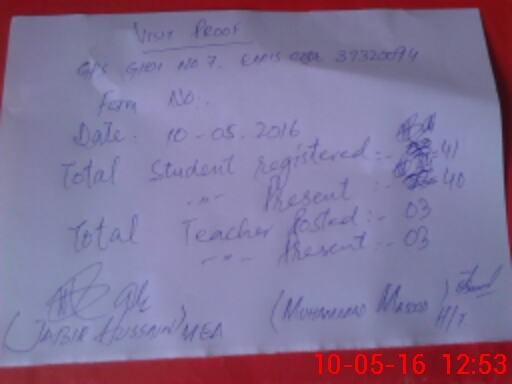 Visit Proof
GPS GHDI No 7. EMIS Code 37320094
Form No.
Date. 10-05.2016
Total Student registered:- 41
-"- Present :- 40
Total Teacher Posted:- 03
-"- Present - 03
(JABIR HUSSAIN) MEA
(MUHAMMAD MASOOD) H/T
10-05-16 12:53